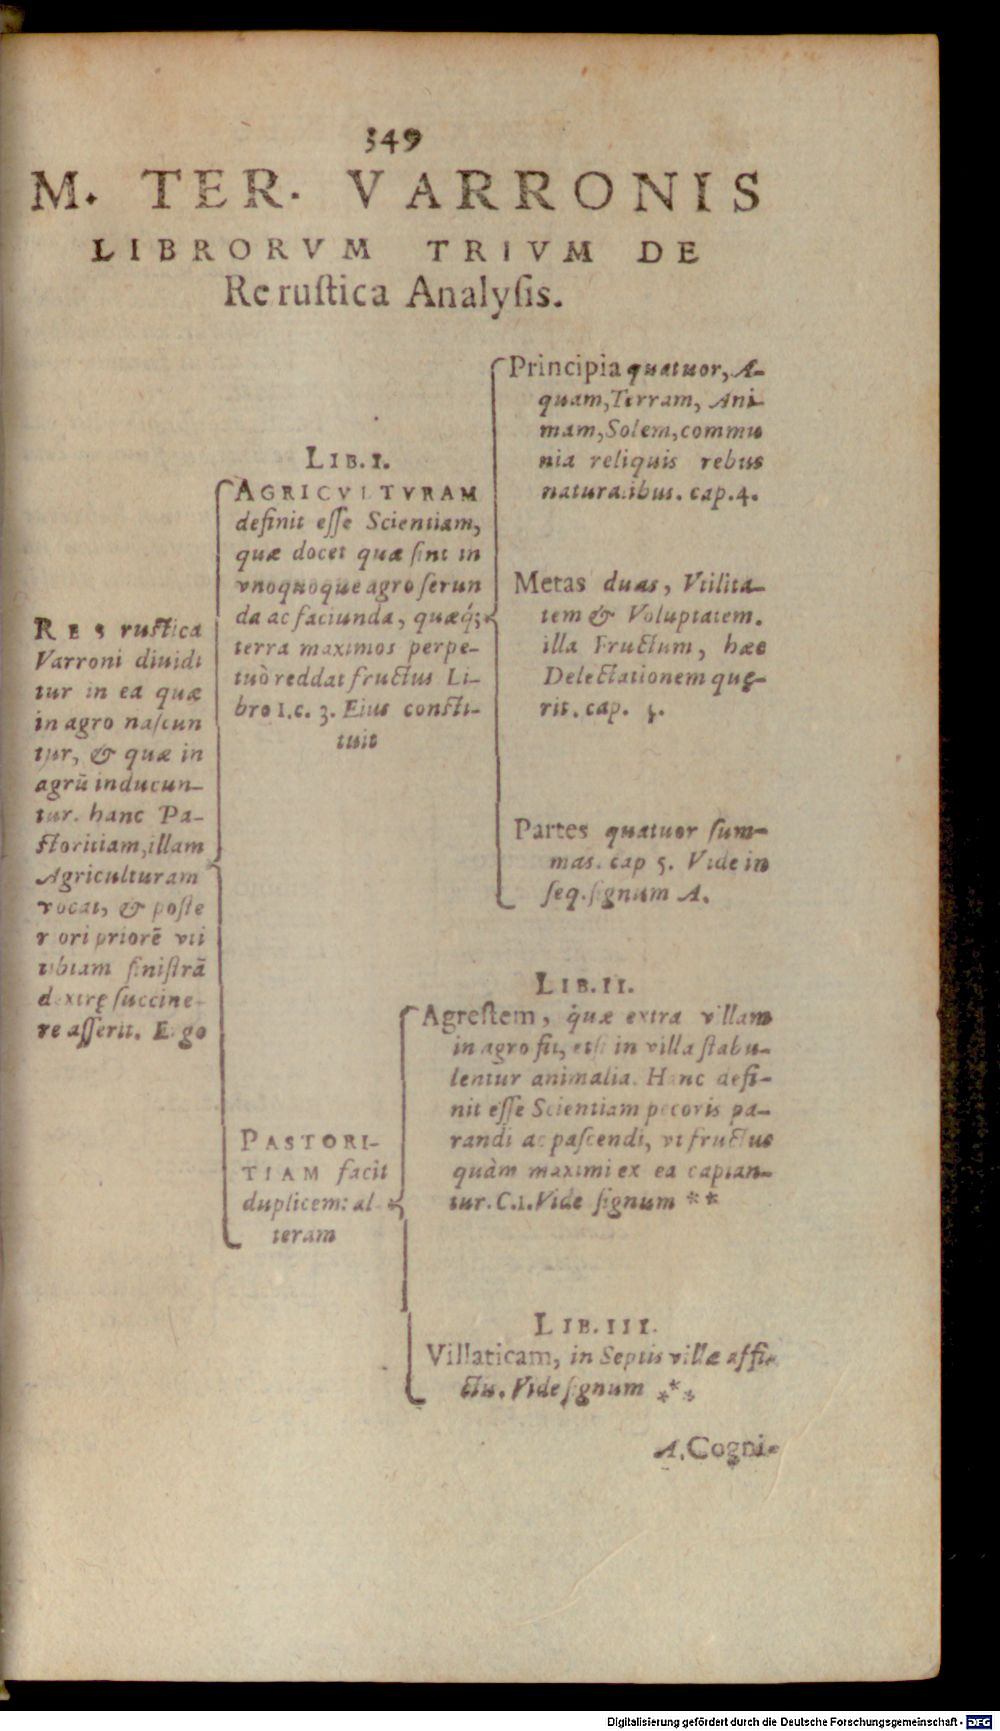 349
M. TER. VARRONIS
LIBRORVM TRIVM DE
Re rustica Analysis.
RES rustica
Varroni diuidi
tur in ea quæ
in agro nascun
tur, & quæ in
agrū inducun-
tur. hanc Pa-
storitiam, illam
Agriculturam
vocat, & poste
riori priorē vti
tibiam sinistrā
dextrę succine-
re asserit. Ergo
LIB. I.
AGRICVLTVRAM
definit esse Scientiam,
quæ docet quæ sint in
vnoquoque agro serun
da ac faciunda, quæq́;
terra maximos perpe-
tuò reddat fructus Li-
bro 1. c. 3. Eius consti-
tuit
Principia quatuor, A-
quam, Terram, Ani-
mam, Solem, commu
nia reliquis rebus
naturalibus. cap. 4.
Metas duas, Vtilita-
tem & Voluptatem.
illa Fructum, hæc
Delectationem quę-
rit. cap.
Partes quatuor sum-
mas. cap 5. Vide in
seq. signum A.
PASTORI-
TIAM facit
duplicem: al-
teram
LIB. II.
Agrestem, q̇uæ extra villam
in agro fit, etsi in villa stabu-
lentur animalia. Hanc defi-
nit esse Scientiam pecoris pa-
randi ac pascendi, vt fructus
quàm maximi ex ea capian-
tur. C. 1. Vide signum **
LIB. III.
Villaticam, in Septis villæ affi-
ctis. Vide signum ***
A. Cogni-
Digitalisierung gefördert durch die Deutsche Forschungsgemeinschaft - DFG